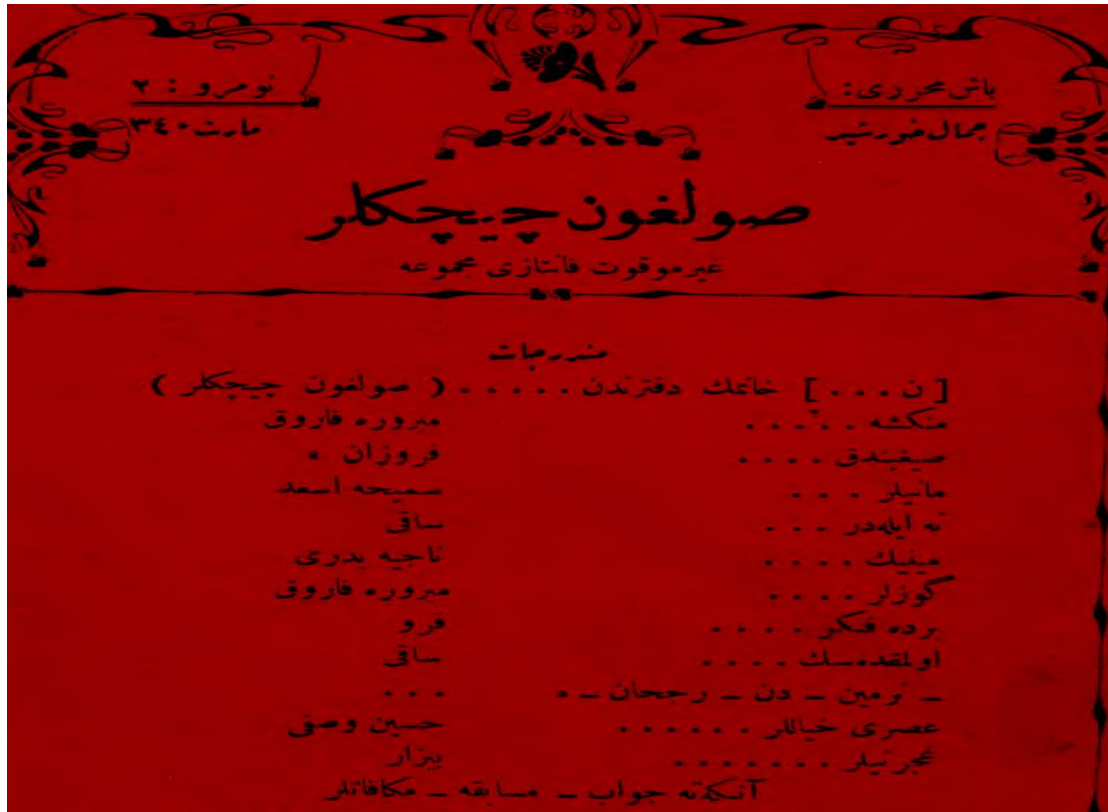 باش محرری:
جمال خورشید
نومرو : ٢
مارت ٣٤٠
صولغون چیچكلر
غیر موقوت فانتازی مجموعه
مندرجات
[ ن . . . ] خانمك دفترندن . . . . . ( صولغون چیچكلر )
منكشه . . . . . مبروره فاروق
صیغیندق . . . . فروزان *
مانیلر . . . سمیحه اسعد
نه ایله‌در . . . ساقی
مینیك . . . . ناجیه بدری
كوزلر . . . . مبروره فاروق
برده فكر . . . . فرو
اولمقده‌سك . . . . ساقی
ـ نرمین ـ دن ـ رجحان ـ * . . .
عصری خیاللر . . . . . . حسین وصفی
. . . . . . . بیزار
آنكته جواب ـ مسابقه ـ مكافاتلر